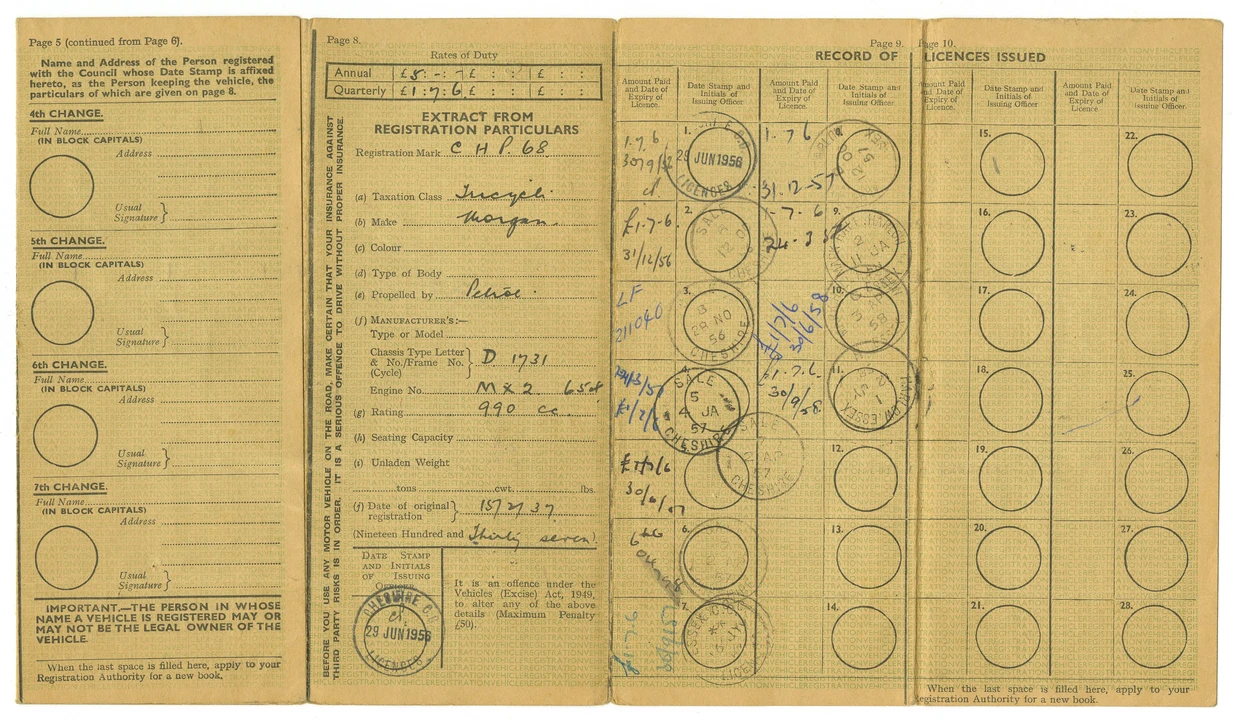 Page 5 (continued from Page 6).
Name and Address of the Person registered
with the Council whose Date Stamp is affixed
hereto, as the Person keeping the vehicle, the
particulars of which are given on page 8.
4th CHANGE.
Full Name
(IN BLOCK CAPITALS)
Address
Usual
Signature
5th CHANGE.
Full Name
(IN BLOCK CAPITALS)
Address
Usual
Signature
6th CHANGE.
Full Name
(IN BLOCK CAPITALS)
Address
Usual
Signature
7th CHANGE.
Full Name
(IN BLOCK CAPITALS)
Address
Usual
Signature
IMPORTANT.—THE PERSON IN WHOSE
NAME A VEHICLE IS REGISTERED MAY OR
MAY NOT BE THE LEGAL OWNER OF THE
VEHICLE.
When the last space is filled here, apply to your
Registration Authority for a new book.
BEFORE YOU USE ANY MOTOR VEHICLE ON THE ROAD, MAKE CERTAIN THAT YOUR INSURANCE AGAINST
THIRD PARTY RISKS IS IN ORDER. IT IS A SERIOUS OFFENCE TO DRIVE WITHOUT PROPER INSURANCE.
Page 8.
Rates of Duty
Annual £5 : - : - £ : : £ : :
Quarterly £1 : 7 : 6 £ : : £ : :
EXTRACT FROM
REGISTRATION PARTICULARS
Registration Mark C H P. 68.
(a) Taxation Class Tricycle
(b) Make Morgan.
(c) Colour
(d) Type of Body
(e) Propelled by Petrol.
(f) MANUFACTURER'S:—
Type or Model
Chassis Type Letter
& No./Frame No. D 1731
(Cycle)
Engine No. M X 2 658
(g) Rating 990 cc.
(h) Seating Capacity
(i) Unladen Weight
tons cwt. lbs.
(j) Date of original
registration 15/2/37
(Nineteen Hundred and Thirty seven)
DATE STAMP
AND INITIALS
OF ISSUING
OFFICER
CHESHIRE C.C.
29 JUN 1956
LICENCES
It is an offence under the
Vehicles (Excise) Act, 1949,
to alter any of the above
details (Maximum Penalty
£50).
Page 9. Page 10.
RECORD OF LICENCES ISSUED
Amount Paid
and Date of
Expiry of
Licence.
Date Stamp and
Initials of
Issuing Officer
Amount Paid
and Date of
Expiry of
Licence.
Date Stamp and
Initials of
Issuing Officer.
Amount Paid
and Date of
Expiry of
Licence.
Date Stamp and
Initials of
Issuing Officer
Amount Paid
and Date of
Expiry of
Licence.
Date Stamp and
Initials of
Issuing Officer.
1. 7. 6
1.
29 JUN 1956
LICENCES
1. 7 6
31.12-57
15.
22.
£1.7.6.
31/12/56
2.
SALE
1. 7. 6
9.
11 JA
16.
23.
LF
211040
3.
28 NO
56
CHESHIRE
£1/7/6
30/6/58
10.
58
17.
24.
SALE
5
4 JA
57
CHESHIRE
£1.7.6.
30/9/58.
11.
HARLOW ESSEX
18.
25.
£1/7/6
30/6/57
SALE
57
CHESHIRE
12.
19.
26.
6.
13.
20.
27.
£1 7 6
7.
ESSEX
14.
21.
28.
When the last space is filled here, apply to your
Registration Authority for a new book.